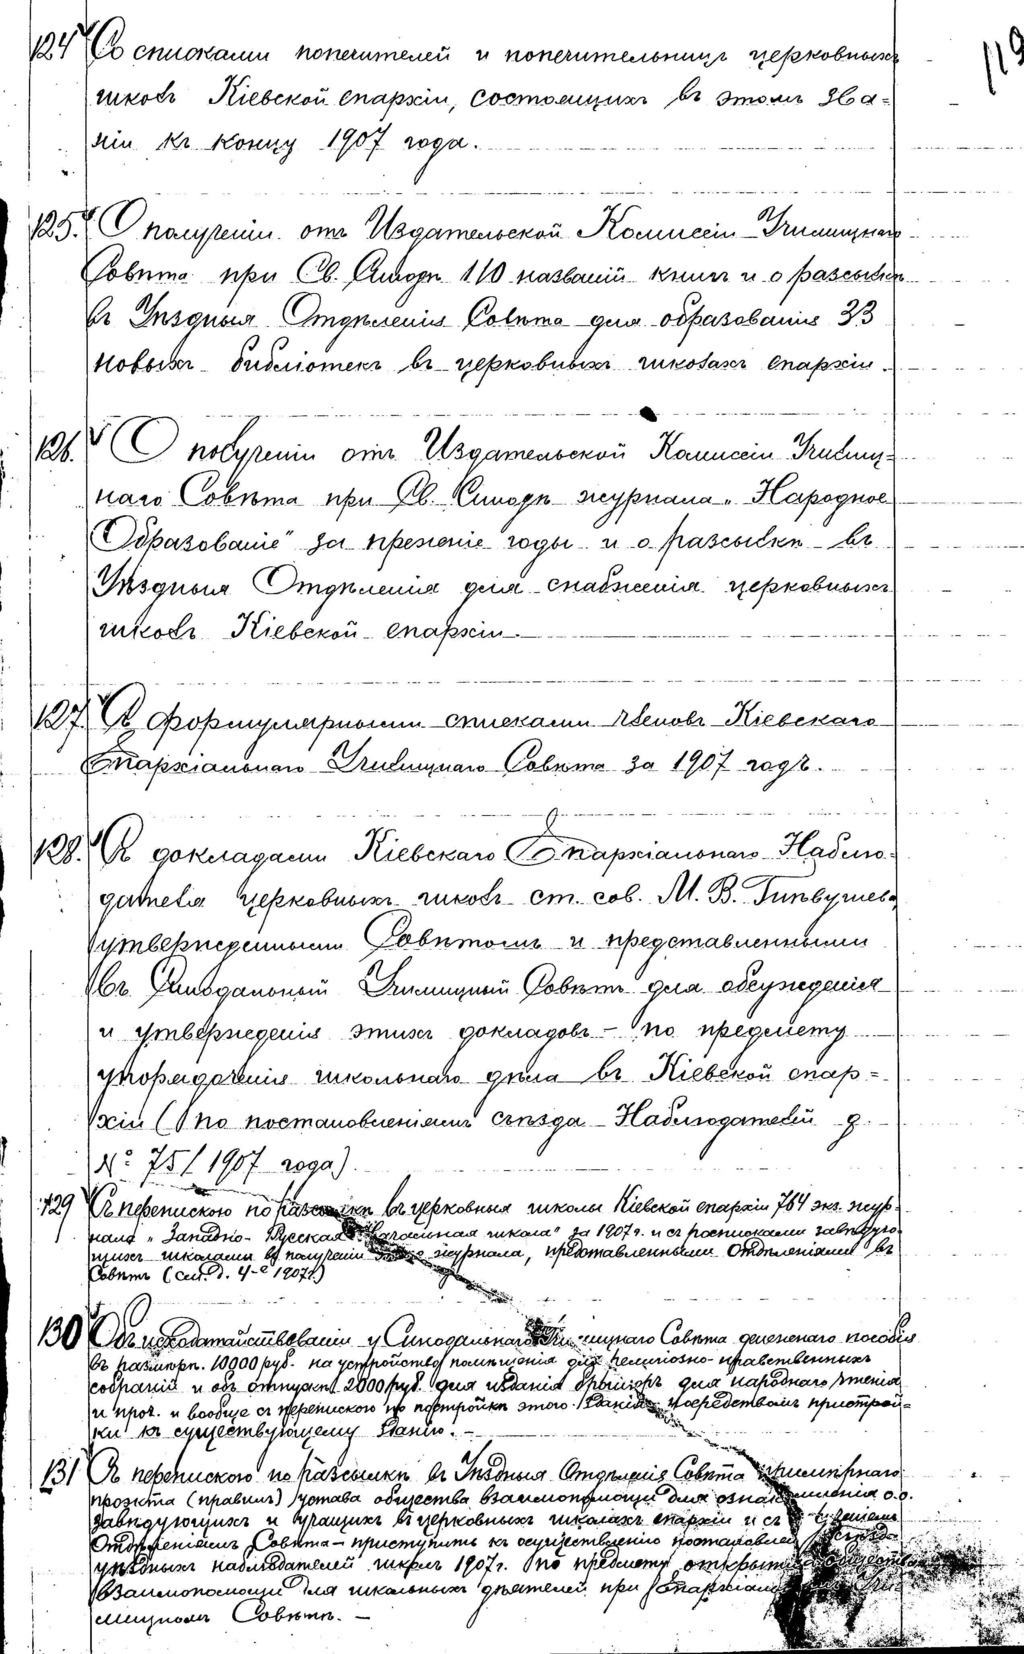 119
124 Со списками попечителей и попечительницъ церковныхъ
школъ Кіевской епархіи, состоящихъ въ этомъ зва=
ніи къ концу 1907 года.
125. О полученіи отъ Издательской Комиссіи Училищнаго
Совѣта при Св. Синодѣ 110 названій книгъ и о разсылкѣ
въ Уѣздныя Отдѣленія Совѣта для образованія 33
новыхъ библіотекъ въ церковныхъ школахъ епархіи.
126. О полученіи отъ Издательской Комиссіи Училищ=
наго Совѣта при Св. Синодѣ журнала „Народное
Образованіе" за прежніе годы и о разсылкѣ въ
Уѣздныя Отдѣленія для снабженія церковныхъ
школъ Кіевской епархіи.
127. Съ формулярными списками членовъ Кіевскаго
Епархіальнаго Училищнаго Совѣта за 1907 годъ.
128. Съ докладами Кіевскаго Епархіальнаго Наблю-
дателя церковныхъ школъ ст. сов. М. В.
утвержденными Совѣтомъ и представленными
въ Синодальный Училищный Совѣтъ для обсужденія
и утвержденія этихъ докладовъ – по предмету
упорядоченія школьнаго дѣла въ Кіевской епар=
хіи (по постановленіямъ съѣзда Наблюдателей д.
№ 75/1907 года).
129 Съ перепискою по разсылкѣ въ церковныя школы Кіевской епархіи 764 экз. жур-
нала „Западно-Русская Начальная школа" за 1907 г. и съ росписками завѣдую-
щихъ школами въ полученіи журнала, представленными Отдѣленіями въ
Совѣтъ (см. д. 4-е 1907 г.)
130 Объ исходатайствованіи у Синодальнаго Училищнаго Совѣта денежнаго пособія
въ размѣрѣ 10000 руб. на устройство помѣщенія для религіозно-нравственныхъ
собраній и объ отпускѣ 2000 руб. для изданія брошюръ для народнаго чтенія
и проч. и вообще съ перепискою по постройкѣ этого зданія посредствомъ пристрой=
ки къ существующему зданію. –
131 Съ перепискою по разсылкѣ въ Уѣздныя Отдѣленія Совѣта примѣрнаго
проэкта (правилъ) устава общества взаимопомощи для ознакомленія о.о.
завѣдующихъ и учащихъ въ церковныхъ школахъ епархіи и съ
Отдѣленіямъ Совѣта – приступить къ осуществленію постановленій съѣзда
уѣздныхъ наблюдателей школъ 1907 г. по предмету открытія общества
взаимопомощи для школьныхъ дѣятелей при Епархіальномъ Учи-
лищномъ Совѣтѣ. –